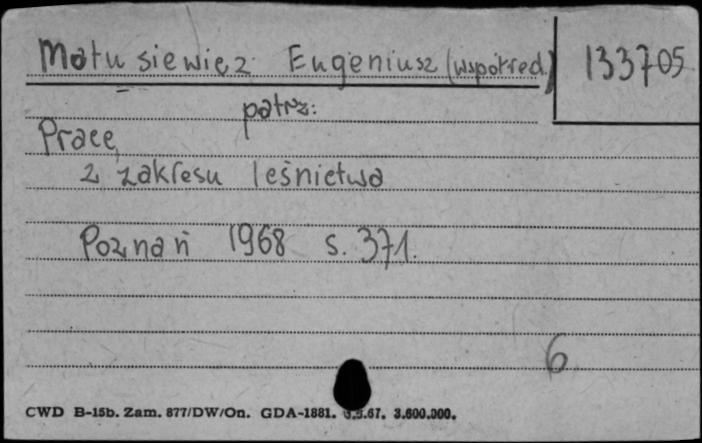 Matusiewicz Eugeniusz (współred.) 133705
patrz:
Prace
z zakresu leśnictwa
Poznań 1968 s. 371.
6
CWD B-15b. Zam. 877/DW/On. GDA-1881. 3.5.67. 3.600.000.